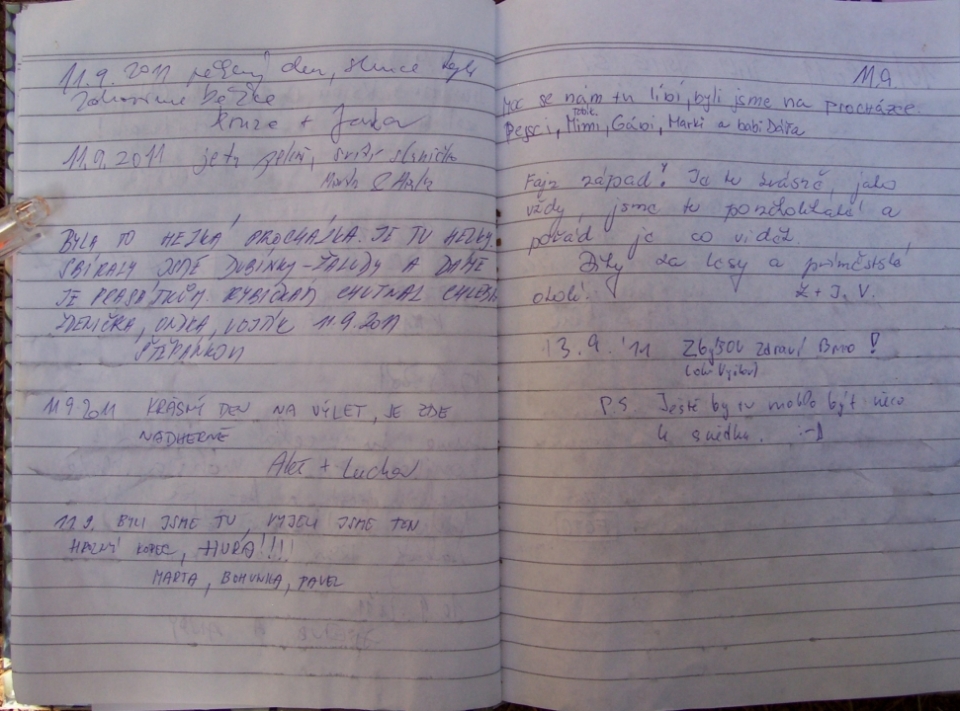 11.9.2011 den, slunce
+ Janka
11.9.2011 je tu svítí sluníčko
BYLA TO HEZKÁ PROCHÁZKA. JE TU HEZKY.
SBÍRALY JSME DUBÍNKY - ŽALUDY A DÁME
JE PRASÁTKŮM. RYBIČKÁM CHUTNAL CHLEBA
ZDENIČKA, ONDRA, VOJTÍK 11.9.2011
ŠTĚPÁNKOVI
11.9.2011 KRÁSNÝ DEN NA VÝLET, JE ZDE
NÁDHERNĚ
Aleš + Lucka
11.9. BYLI JSME TU, VYJELI JSME TEN
KOPEC, HURÁ!!!!
MARTA, BOHUNKA, PAVEL
11.9.
Moc se nám tu líbí, byli jsme na procházce.
Pejsci, Mimi, Gábi, Marki a babi Dáša
Fajn západ! Je tu krásně, jako
vždy, jsme tu a
pořád je co vidět
Díky za lesy a příměstské
okolí. Z + J. V.
13.9.'11 Zbýšov zdraví Brno!
P.S. Ještě by tu mohlo být něco
k snědku. :-D